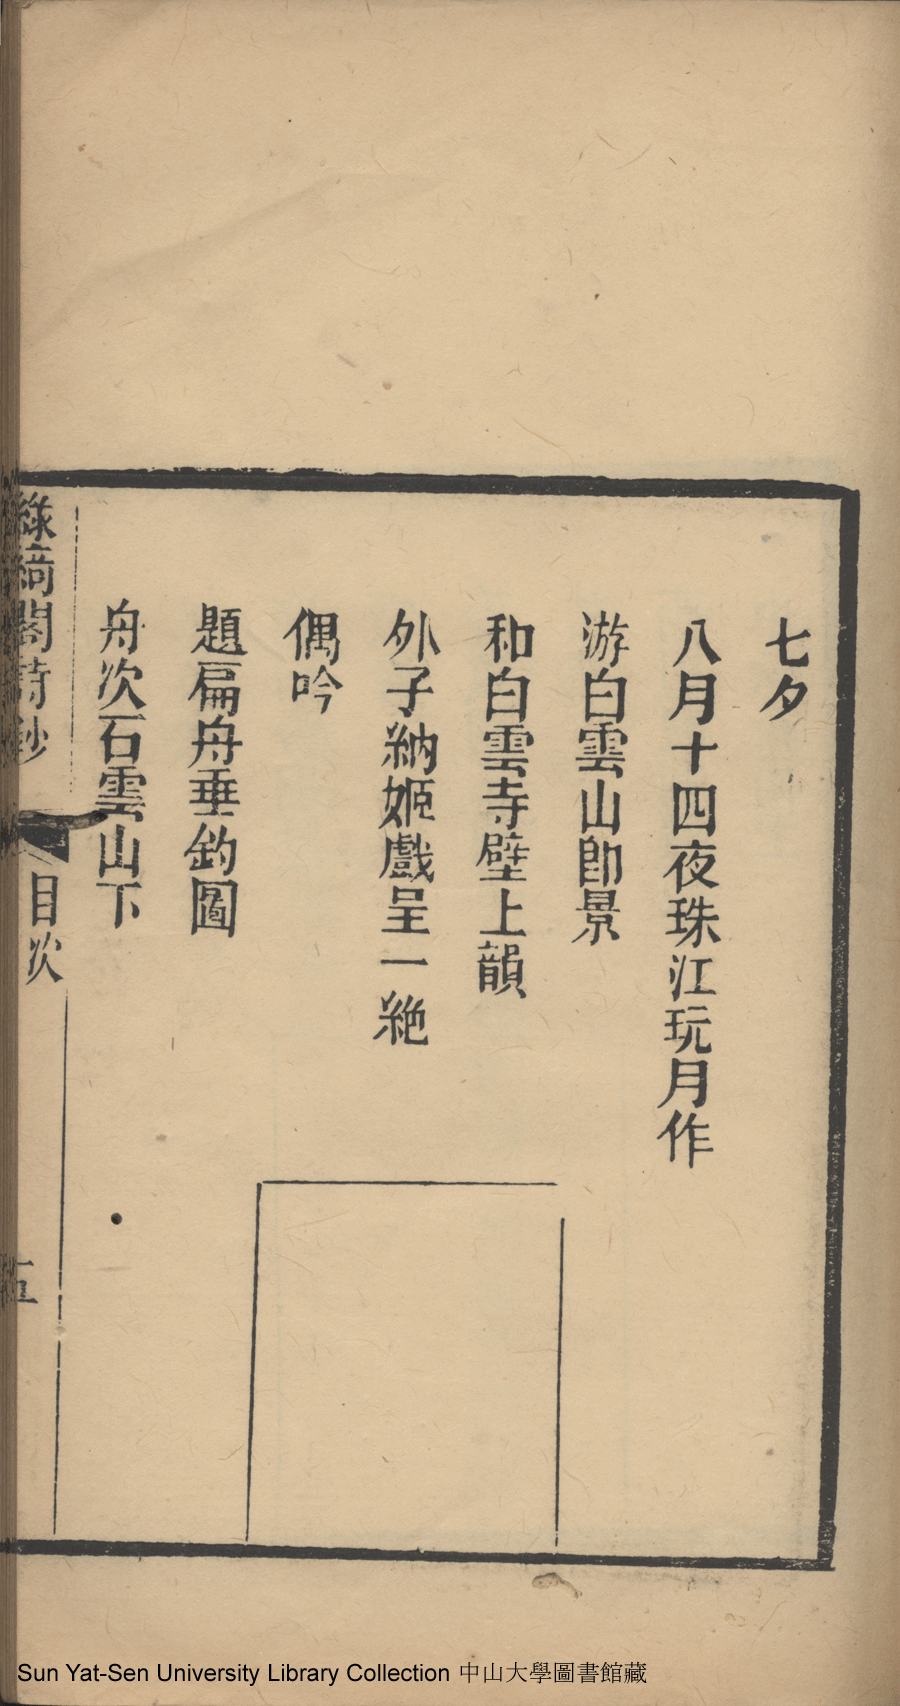 七夕
八月十四夜珠江玩月作
游白雲山即景
和白雲寺壁上韻
外子納姬戲呈一絶
偶吟
題扁舟垂釣圖
舟次石雲山下
綠綺閣詩鈔
目次
五
Sun Yat-Sen University Library Collection 中山大學圖書館藏